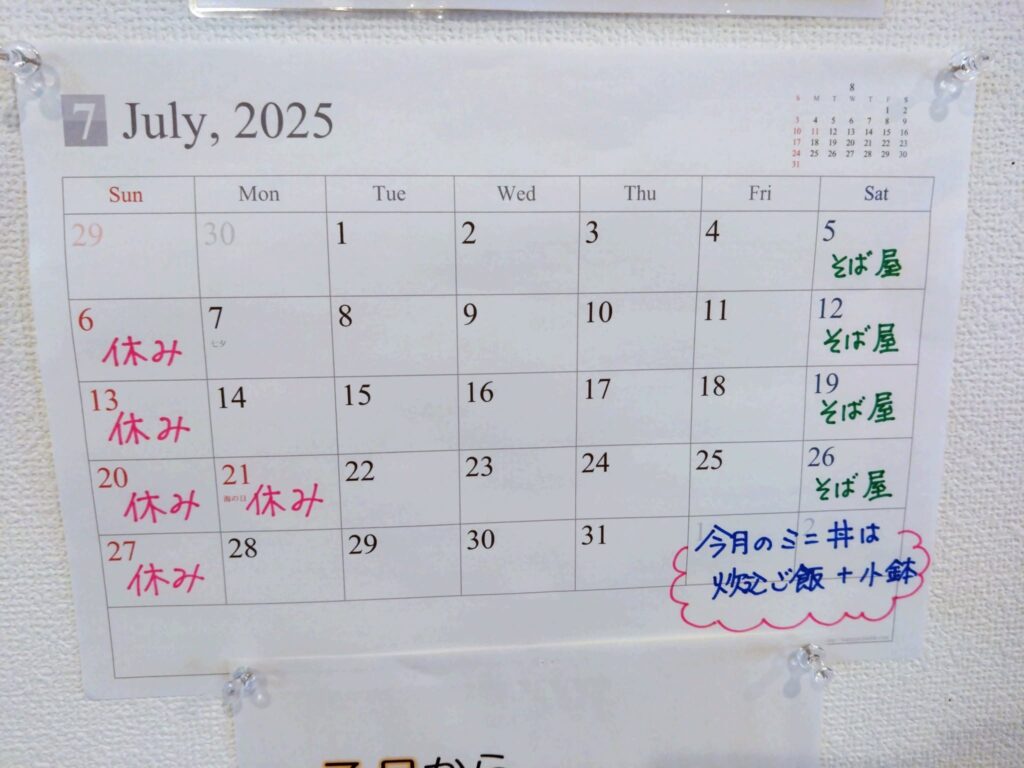 7 July, 2025
8
S M T W T F S
1 2
3 4 5 6 7 8 9
10 11 12 13 14 15 16
17 18 19 20 21 22 23
24 25 26 27 28 29 30
31
Sun Mon Tue Wed Thu Fri Sat
29 30 1 2 3 4 5
そば屋
6 7 8 9 10 11 12
七夕
休み そば屋
13 14 15 16 17 18 19
休み そば屋
20 21 22 23 24 25 26
海の日
休み 休み そば屋
27 28 29 30 31 1 2
休み
今月のミニ丼は
炊込ご飯+小鉢
7月から